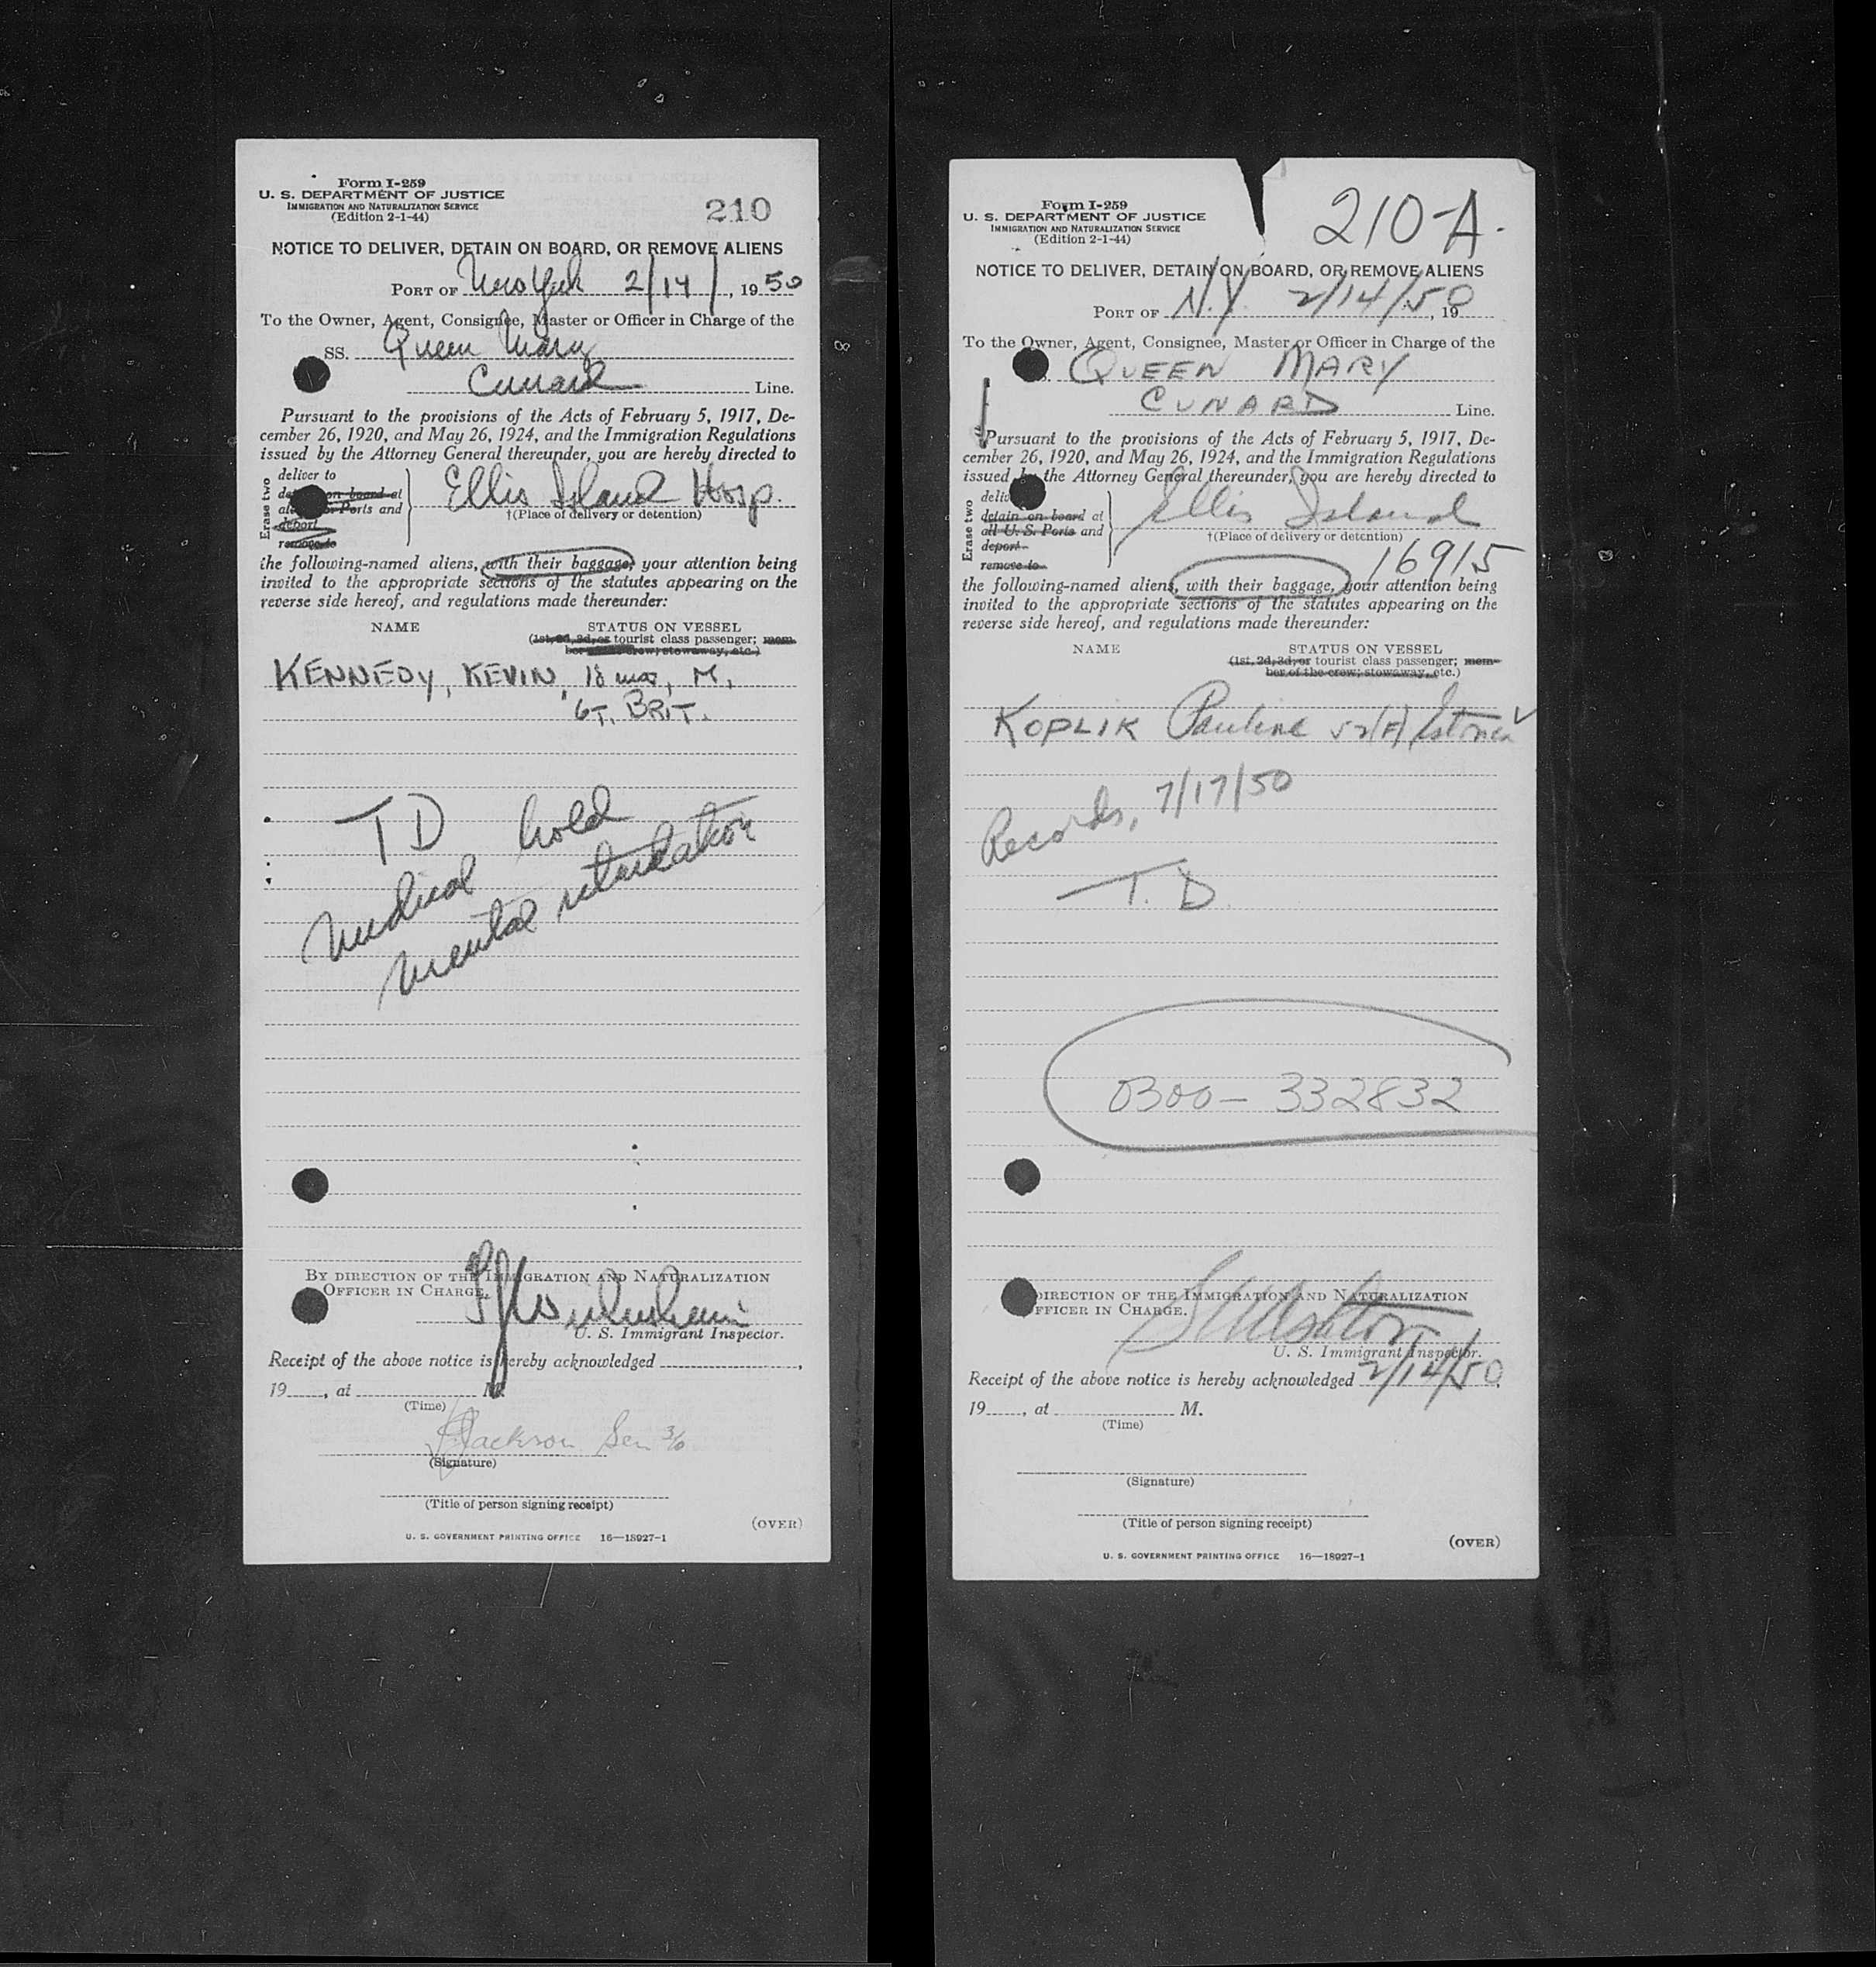 Form I-259
U. S. DEPARTMENT OF JUSTICE
IMMIGRATION AND NATURALIZATION SERVICE
(Edition 2-1-44)
210
NOTICE TO DELIVER, DETAIN ON BOARD, OR REMOVE ALIENS
PORT OF New York 2/14/, 1950
To the Owner, Agent, Consignee, Master or Officer in Charge of the
SS. Queen Mary
Cunard Line.
Pursuant to the provisions of the Acts of February 5, 1917, De-
cember 26, 1920, and May 26, 1924, and the Immigration Regulations
issued by the Attorney General thereunder, you are hereby directed to
Erase two
deliver to
on board at
Ports and
deport
remove to
Ellis Island Hosp.
†(Place of delivery or detention)
the following-named aliens, with their baggage, your attention being
invited to the appropriate sections of the statutes appearing on the
reverse side hereof, and regulations made thereunder:
NAME STATUS ON VESSEL
(1st, 2d, 3d, or tourist class passenger; mem-
ber crew; stowaway, etc.)
KENNEDY, KEVIN, 18 mos, M,
GT. BRIT.
TD hold
medical
mental retardation
BY DIRECTION OF THE IMMIGRATION AND NATURALIZATION
OFFICER IN CHARGE.
U. S. Immigrant Inspector.
Receipt of the above notice is hereby acknowledged
19, at M.
(Time)
Jackson Sen 3/0
(Signature)
(Title of person signing receipt)
(OVER)
U. S. GOVERNMENT PRINTING OFFICE 16—18927-1
Form I-259
U. S. DEPARTMENT OF JUSTICE
IMMIGRATION AND NATURALIZATION SERVICE
(Edition 2-1-44)
210-A.
NOTICE TO DELIVER, DETAIN ON BOARD, OR REMOVE ALIENS
PORT OF N.Y. 2/14/50, 19
To the Owner, Agent, Consignee, Master or Officer in Charge of the
QUEEN MARY
CUNARD Line.
Pursuant to the provisions of the Acts of February 5, 1917, De-
cember 26, 1920, and May 26, 1924, and the Immigration Regulations
issued by the Attorney General thereunder, you are hereby directed to
Erase two
detain on board at
all U. S. Ports and
deport
remove to
Ellis Island
†(Place of delivery or detention)
16915
the following-named aliens, with their baggage, your attention being
invited to the appropriate sections of the statutes appearing on the
reverse side hereof, and regulations made thereunder:
NAME STATUS ON VESSEL
(1st, 2d, 3d, or tourist class passenger; mem-
ber of the crew; stowaway, etc.)
KOPLIK Pauline 52(F) Estonia
Records, 7/17/50
T. D.
0300- 332832
DIRECTION OF THE IMMIGRATION AND NATURALIZATION
OFFICER IN CHARGE.
U. S. Immigrant Inspector.
Receipt of the above notice is hereby acknowledged 2/14/50,
19, at M.
(Time)
(Signature)
(Title of person signing receipt)
(OVER)
U. S. GOVERNMENT PRINTING OFFICE 16—18927-1